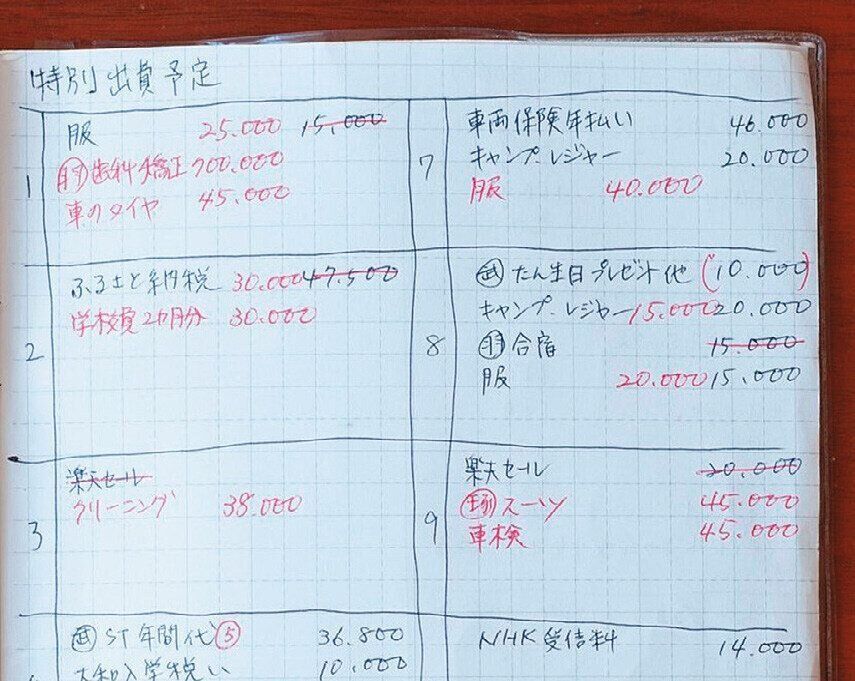 特別出費予定
1
服 25.000 15,000
歯科矯正 700.000
車のタイヤ 45.000
2
ふるさと納税 30.000 47.500
学校費2カ月分 30.000
3
楽天セール
クリーニング 38.000
武 ST年間代 5 36.800
入学祝い 10.000
7
車両保険年払い 46.000
キャンプ.レジャー 20.000
服 40.000
8
武 たん生日プレゼント他 (10.000)
キャンプ.レジャー 15.000 20.000
合宿 15.000
服 20.000 15,000
9
楽天セール 20.000
スーツ 45.000
車検 45.000
NHK受信料 14.000